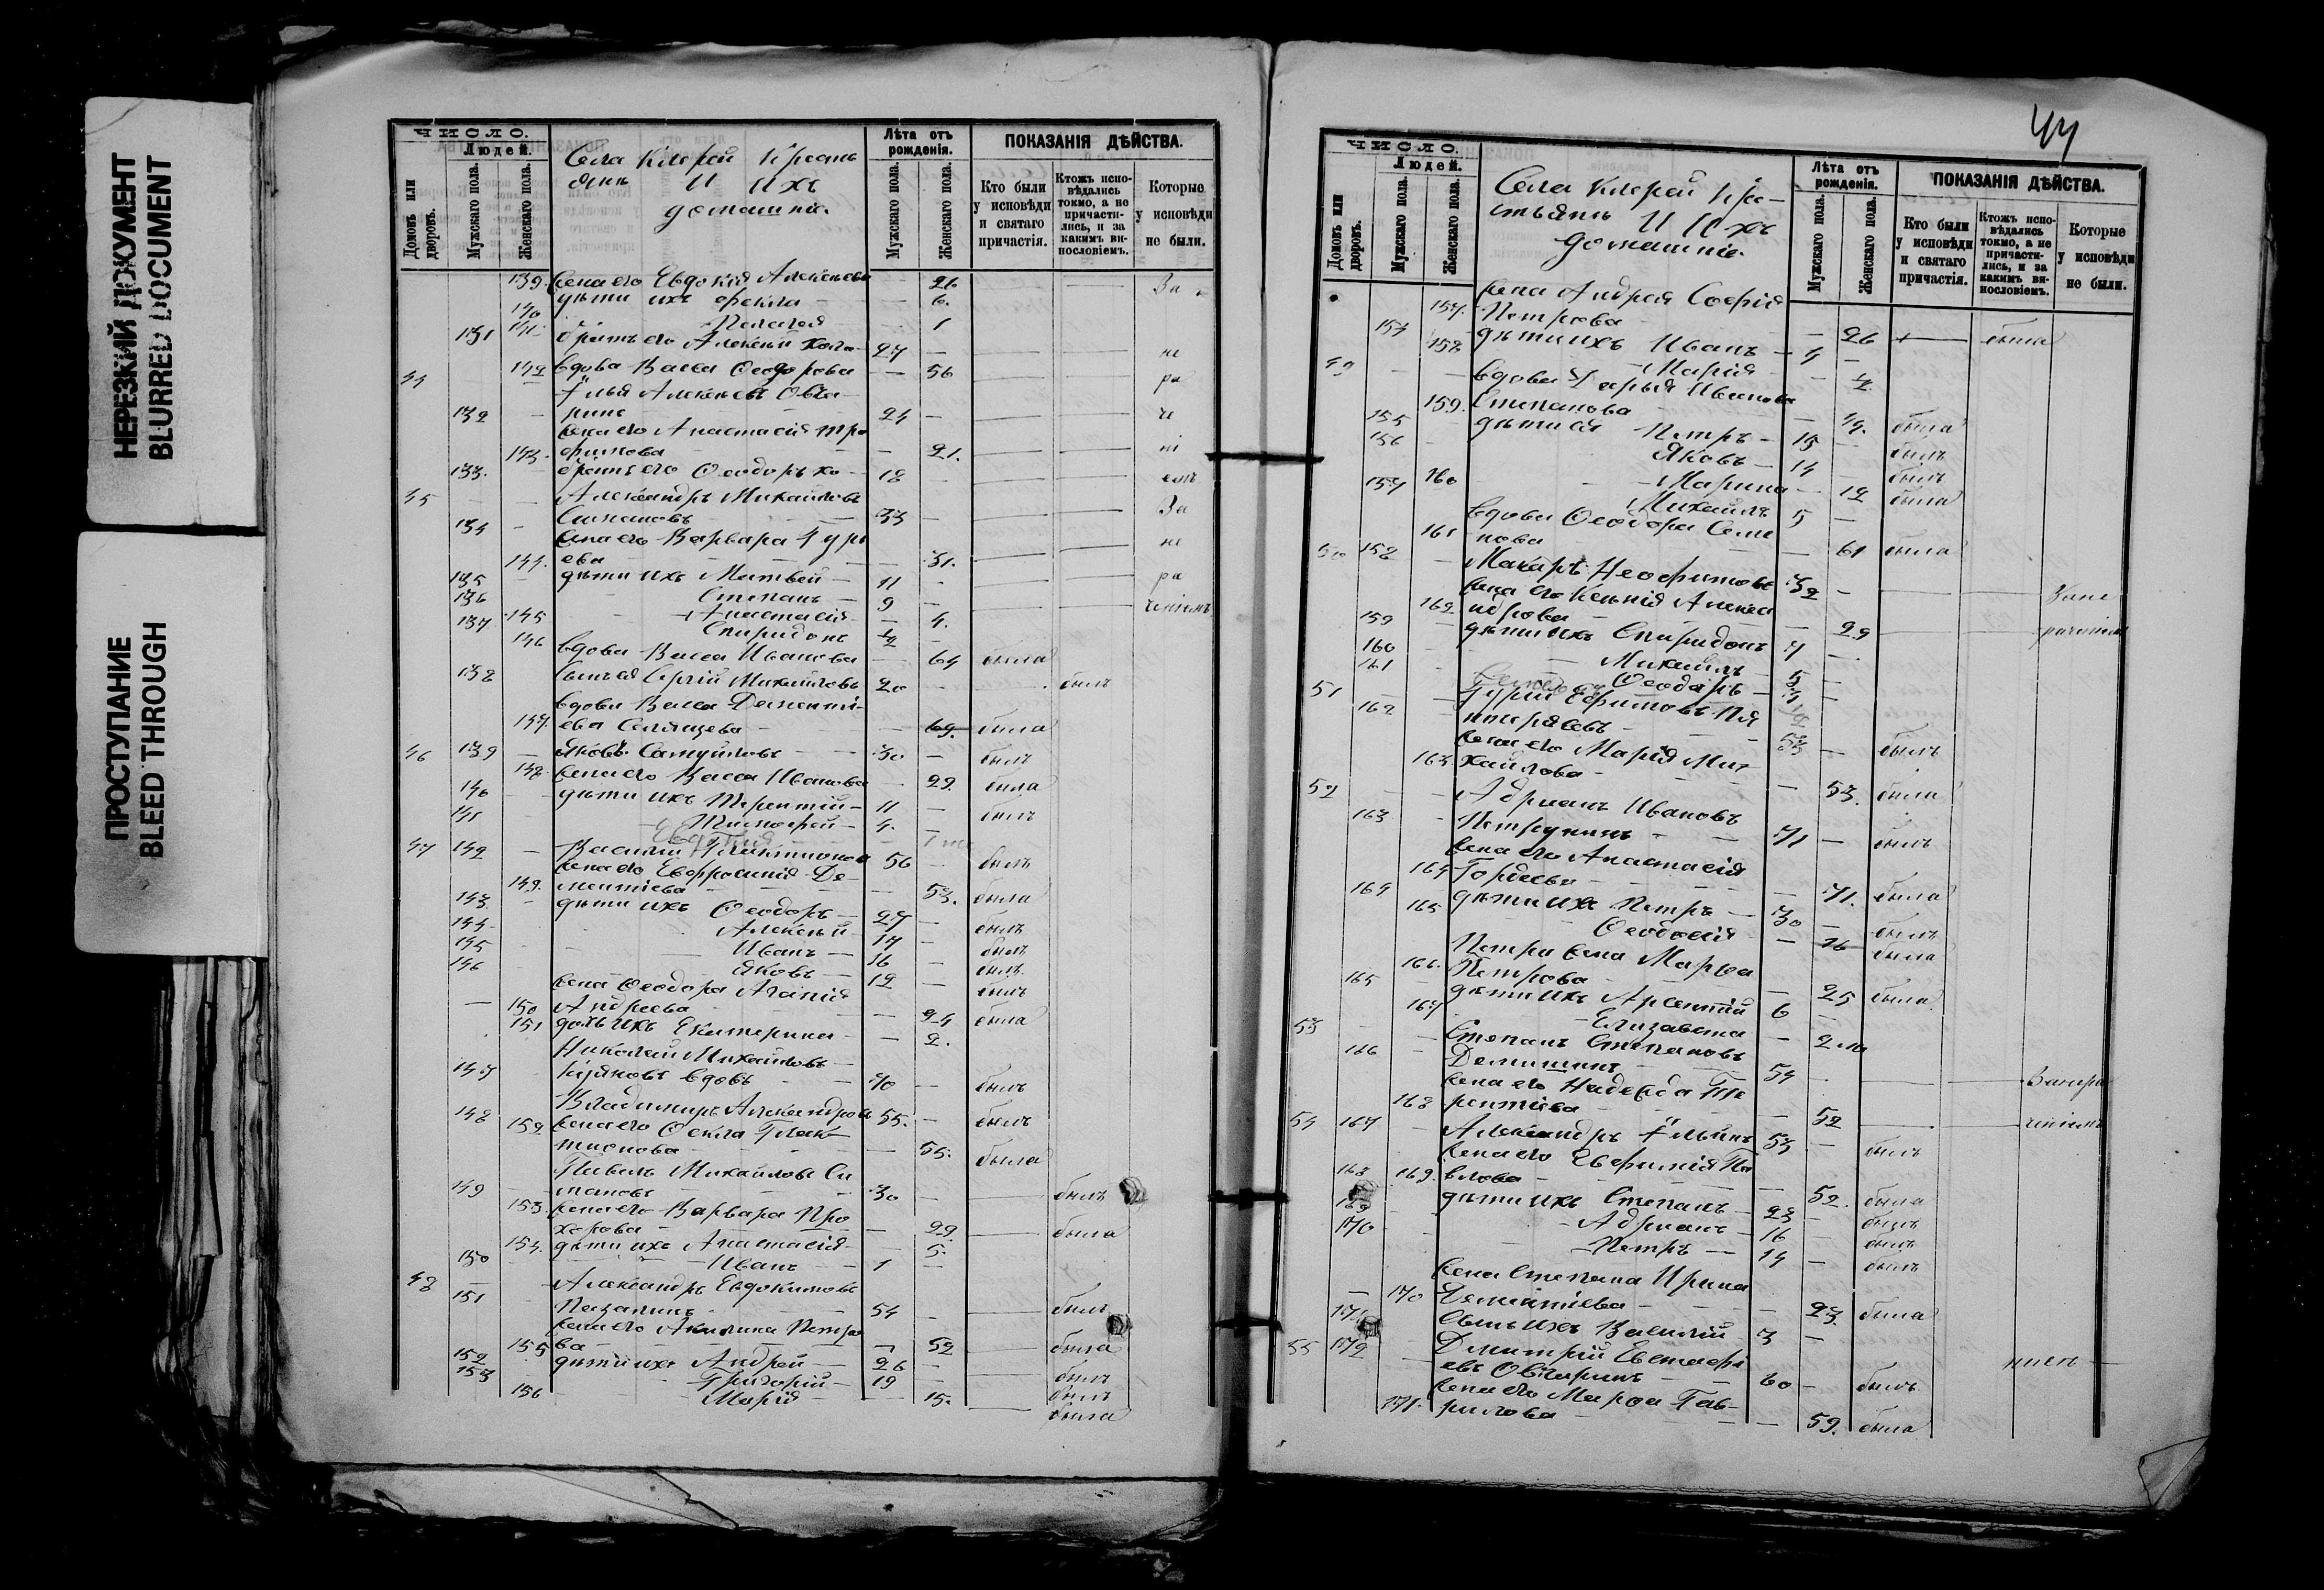 НЕРЕЗКИЙ ДОКУМЕНТ
BLURRED DOCUMENT
ПРОСТУПАНИЕ
BLEED THROUGH
ЧИСЛО.
Людей.
Домовъ или дворовъ.
Мужскаго пола.
Женскаго пола.
Села Ключей Кресть
янъ И Ихъ
домашніе.
Лѣта отъ рожденія.
Мужскаго пола.
Женскаго пола.
ПОКАЗАНІЯ ДѢЙСТВА.
Кто были у исповѣди и святаго причастія.
Ктожъ испо-вѣдались токмо, а не причасти-лись, и за какимъ ви-нословіемъ.
Которые у исповѣди не были.
139. жена его Евдокія Алексѣева — 26 За
140 дѣти ихъ Ѳекла — 6.
141 Пелагея 1
131 братъ его Алексѣй хол. 27 — не
142 вдова Васса Ѳеодорова — 56 ра
44 Илья Алексѣевъ Овча-
132 — ринъ 24 — че
жена его Анастасія Тро
143. фимова — 21. ні
133. братъ его Ѳеодоръ хо — 18 — емъ
45 Александръ Михайловъ За
134 — Симановъ 33 —
жена его Варвара Гурь не
144. ева — 31.
135 дѣти ихъ Матвей — 11 — ра
136 Степанъ — 9 — ченіемъ
145 Анастасія — 4.
137 Спиридонъ ½ —
146 вдова Васса Иванова — 64 была
138 сынъ ея Сергій Михайловъ 20 — былъ
вдова Васса Дементі-
147. ева Селянцева — 69. была
46 139 — Яковъ Самуйловъ — 30 — былъ
148. жена его Васса Иванова — 29. была
140 дѣти ихъ Терентій — 11 былъ
141 Тимофей — 4. —
47 142 — Василій Галактіоновъ 56 — былъ
жена его Евфросинія Де-
149. ментіева — 53. была
143. дѣти ихъ Ѳеодоръ — 27 — былъ
144. Алексѣй 17 — былъ
145 Иванъ — 16 — былъ
146 Яковъ — 12 — былъ
жена Ѳеодора Агапія
— 150 Андреева — 24 была
151 дочь ихъ Екатерина — 2.
Николай Михайловъ —
147 Куяновъ вдовъ 70 — былъ
Владимиръ Александровъ 55. — былъ
148 152 жена его Ѳекла Галак
тіонова — 55. была
Павелъ Михайловъ Си
149 мановъ 30 — былъ
153. жена его Варвара Про
хорова — 29. была
154. дѣти ихъ Анастасія — 5.
150 Иванъ — 1 —
48 Александръ Евдокимовъ
151 54 — былъ
жена его Акилина Петро
155 ва — 52 была
152 дѣти ихъ Андрей — 26 — былъ
153 Григорій — 19 былъ
156 Марія — 15. была
44
ЧИСЛО.
Людей.
Домовъ или дворовъ.
Мужскаго пола.
Женскаго пола.
Села Ключей Кре-
стьянъ И Ихъ
домашніе.
Лѣта отъ рожденія.
Мужскаго пола.
Женскаго пола.
ПОКАЗАНІЯ ДѢЙСТВА.
Кто были у исповѣди и святаго причастія.
Ктожъ испо-вѣдались токмо, а не причасти-лись, и за какимъ ви-нословіемъ.
Которые у исповѣди не были.
жена Андрея Софія
157. Петрова — 26 была
154 дѣти ихъ Иванъ — 4 —
158 Марія — ½
49 вдова Дарья Иванова
159. Степанова — 49. была
155 дѣти ея Петръ — 18 — былъ
156 Яковъ — 14 — былъ
160 Марина — 12 была
157 Михаилъ 5 —
вдова Ѳеодора Семе
161 нова — 61 была
50 158 — Макаръ Неофитовъ 32 — Зане
жена его Ксенія Алекса
162. ндрова — 29 раченіемъ
159 дѣти ихъ Спиридонъ 7 —
160 Михаилъ 5 —
161 Ѳеодоръ 3 —
51 Гурій Ефимовъ
162 53 — былъ
жена его Марія Ми-
163. хайлова — 53. была
52 Адріанъ Ивановъ
163 Петрунинъ 71 — былъ
жена его Анастасія
164 Гордеева — 71. была
164 дѣти ихъ Петръ — 30 — былъ
165 Ѳеодосія — 16 была
Петра жена Марѳа
166. Петрова — 25 была
165 дѣти ихъ Арсентій 6 —
167 Елизавета — 2
53 Степанъ Степановъ
166 Демишинъ 54 Занера
жена его Надежда Те
168 рентіева — 52 ченіемъ
54 167 — Александръ Ильинъ 53 — былъ
жена его Евфимія Па
169. влова — 52. была
168 дѣти ихъ Степанъ — 23 — былъ
169 Адріанъ — 16 былъ
170 Петръ — 14 — былъ
жена Степана Ирина
170 Дементіева — 23. была
171 сынъ ихъ Василій 3 —
55 172 Дмитрій Евстафі
евъ Овчаринъ 60 — былъ
жена его Марѳа Гав-
171. рилова — 59. была